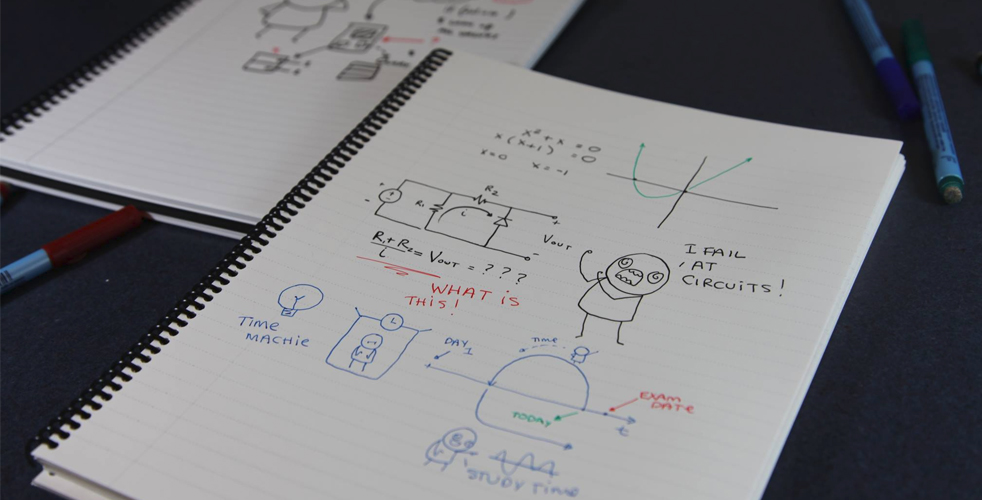 x² + x = 0
x(x+1) = 0
x=0 x = -1
+
-
R₁
R₂
i
+
Vout
-
R₁+R₂/i = Vout = ???
WHAT IS
THIS!
I FAIL
AT
CIRCUITS!
TIME
MACHIE
DAY
1
TIME
TODAY
EXAM
DATE
t
STUDY TIME